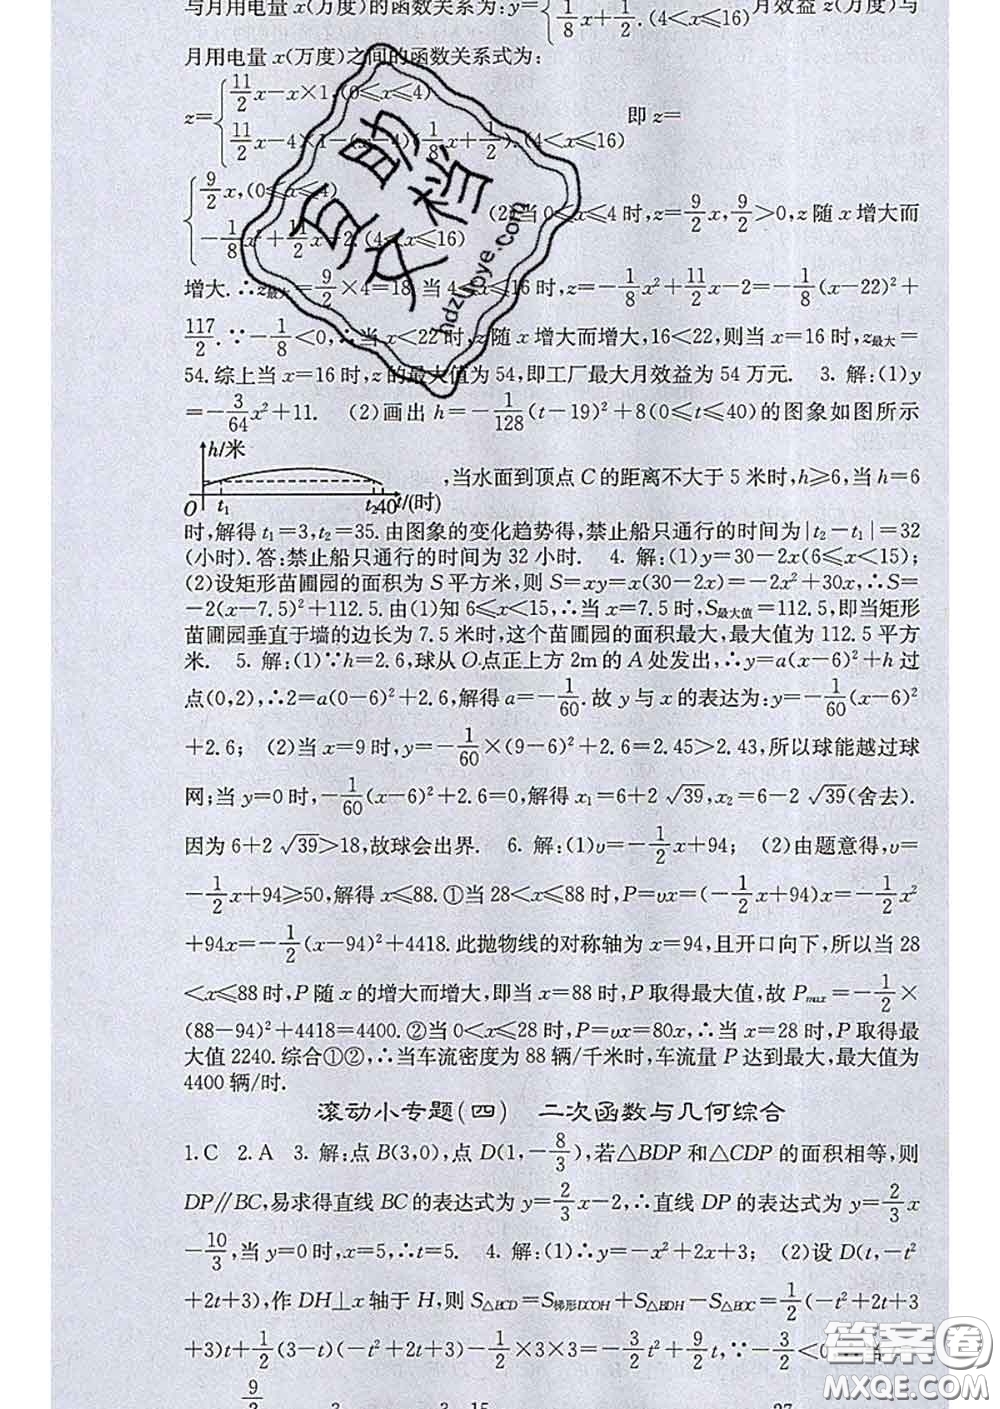 与月用电量 x(万度)的函数关系为:y={ 1/8x+1/2.(4<x≤16) 月效益 z(万度)与
月用电量 x(万度)之间的函数关系式为:
z={ 11/2x-x×1,(0≤x≤4)
11/2x-4×1-(x-4)(1/8x+1/2).(4<x≤16) 即 z=
{ 9/2x,(0≤x≤4)
-1/8x²+11/2x-2.(4<x≤16) (2)当 0≤x≤4 时,z=9/2x,9/2>0,z 随 x 增大而
增大.∴z最大=9/2×4=18,当 4<x≤16 时,z=-1/8x²+11/2x-2=-1/8(x-22)²+
117/2.∵-1/8<0,∴当 x<22 时,z 随 x 增大而增大,16<22,则当 x=16 时,z最大=
54.综上当 x=16 时,z 的最大值为 54,即工厂最大月效益为 54 万元. 3. 解:(1)y
=-3/64x²+11. (2)画出 h=-1/128(t-19)²+8(0≤t≤40)的图象如图所示
h/米
O t₁ t₂40 t/(时)
,当水面到顶点 C 的距离不大于 5 米时,h≥6,当 h=6
时,解得 t₁=3,t₂=35.由图象的变化趋势得,禁止船只通行的时间为|t₂-t₁|=32
(小时).答:禁止船只通行的时间为 32 小时. 4. 解:(1)y=30-2x(6≤x<15);
(2)设矩形苗圃园的面积为 S 平方米,则 S=xy=x(30-2x)=-2x²+30x,∴S=
-2(x-7.5)²+112.5.由(1)知 6≤x<15,∴当 x=7.5 时,S最大值=112.5,即当矩形
苗圃园垂直于墙的边长为 7.5 米时,这个苗圃园的面积最大,最大值为 112.5 平方
米. 5. 解:(1)∵h=2.6,球从 O 点正上方 2m 的 A 处发出,∴y=a(x-6)²+h 过
点(0,2),∴2=a(0-6)²+2.6,解得 a=-1/60.故 y 与 x 的表达为:y=-1/60(x-6)²
+2.6; (2)当 x=9 时,y=-1/60×(9-6)²+2.6=2.45>2.43,所以球能越过球
网;当 y=0 时,-1/60(x-6)²+2.6=0,解得 x₁=6+2√39,x₂=6-2√39(舍去).
因为 6+2√39>18,故球会出界. 6. 解:(1)υ=-1/2x+94; (2)由题意得,υ=
-1/2x+94≥50,解得 x≤88.①当 28<x≤88 时,P=υx=(-1/2x+94)x=-1/2x²
+94x=-1/2(x-94)²+4418.此抛物线的对称轴为 x=94,且开口向下,所以当 28
<x≤88 时,P 随 x 的增大而增大,即当 x=88 时,P 取得最大值,故 Pmax=-1/2×
(88-94)²+4418=4400.②当 0<x≤28 时,P=υx=80x,∴当 x=28 时,P 取得最
大值 2240.综合①②,∴当车流密度为 88 辆/千米时,车流量 P 达到最大,最大值为
4400 辆/时.
滚动小专题(四) 二次函数与几何综合
1.C 2.A 3. 解:点 B(3,0),点 D(1,-8/3),若△BDP 和△CDP 的面积相等,则
DP∥BC,易求得直线 BC 的表达式为 y=2/3x-2,∴直线 DP 的表达式为 y=2/3x
-10/3,当 y=0 时,x=5,∴t=5. 4. 解:(1)∴y=-x²+2x+3; (2)设 D(t,-t²
+2t+3),作 DH⊥x 轴于 H,则 S△BCD=S梯形DCOH+S△BDH-S△BOC=1/2(-t²+2t+3
+3)t+1/2(3-t)(-t²+2t+3)-1/2×3×3=-3/2t²+9/2t,∵-3/2<0
互助文档
hdzuoye.com
答案圈
MXQE.COM